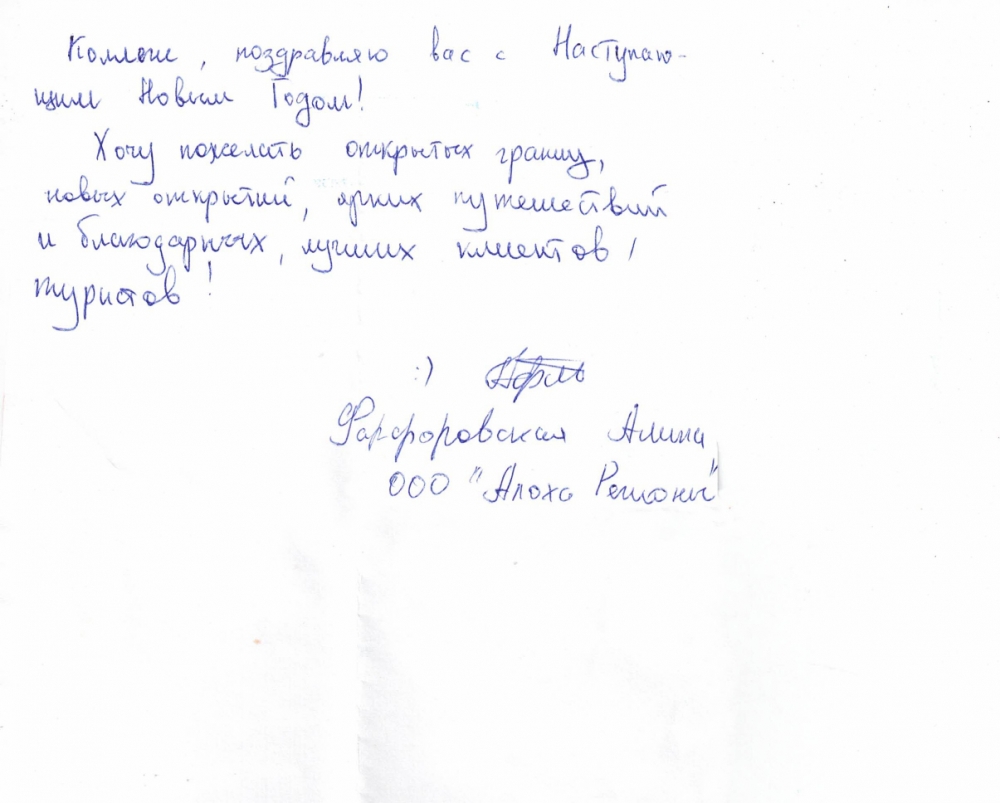 Коллеги, поздравляю вас с Наступаю-
щим Новым Годом!
Хочу пожелать открытых границ,
новых открытий, ярких путешествий
и благодарных, лучших клиентов /
туристов!
:)
Фарфоровская Алина
ООО "Алоха Регионы"